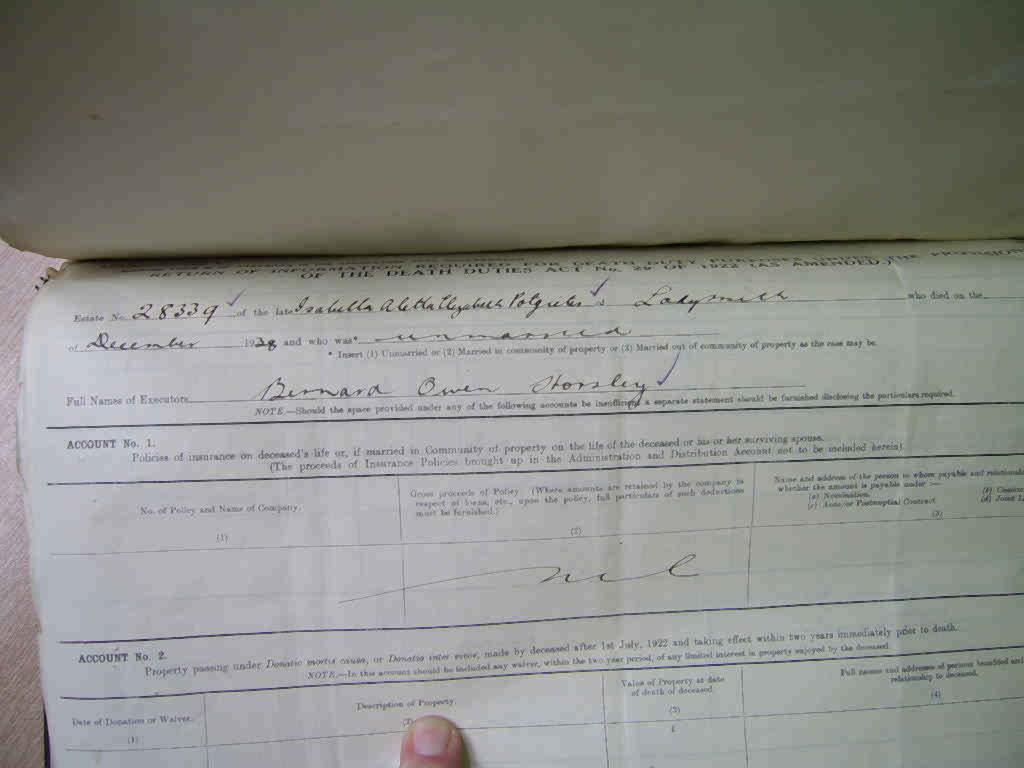 RETURN OF INFORMATION REQUIRED FOR DEATH DUTY PURPOSES UNDER THE PROVISION
OF THE DEATH DUTIES ACT No. 29 OF 1922 (AS AMENDED).
Estate No. 28339 of the late Isabella Aletta Elizabeth Potgieter Ladysmith who died on the
of December 1938 and who was* unmarried
* Insert (1) Unmarried or (2) Married in community of property or (3) Married out of community of property as the case may be.
Full Names of Executors Bernard Owen Horsley
NOTE.—Should the space provided under any of the following accounts be insufficient a separate statement should be furnished disclosing the particulars required.
ACCOUNT No. 1.
Policies of insurance on deceased's life or, if married in Community of property on the life of the deceased or his or her surviving spouse.
(The proceeds of Insurance Policies brought up in the Administration and Distribution Account not to be included herein).
No. of Policy and Name of Company.
(1)
Gross proceeds of Policy. (Where amounts are retained by the company in
respect of loans, etc., upon the policy, full particulars of such deductions
must be furnished.)
(2)
Name and address of the person to whom payable and relationsh
whether the amount is payable under —
(a) Nomination. (b) Cession
(c) Ante/or Postnuptial Contract (d) Joint L
(3)
nil
ACCOUNT No. 2.
Property passing under Donatio mortis causa, or Donatio inter vivos, made by deceased after 1st July, 1922 and taking effect within two years immediately prior to death.
NOTE.—In this account should be included any waiver, within the two year period, of any limited interest in property enjoyed by the deceased.
Date of Donation or Waiver.
(1)
Description of Property.
(2)
Value of Property at date
of death of deceased.
(3)
£
Full names and addresses of persons benefited and
relationship to deceased.
(4)